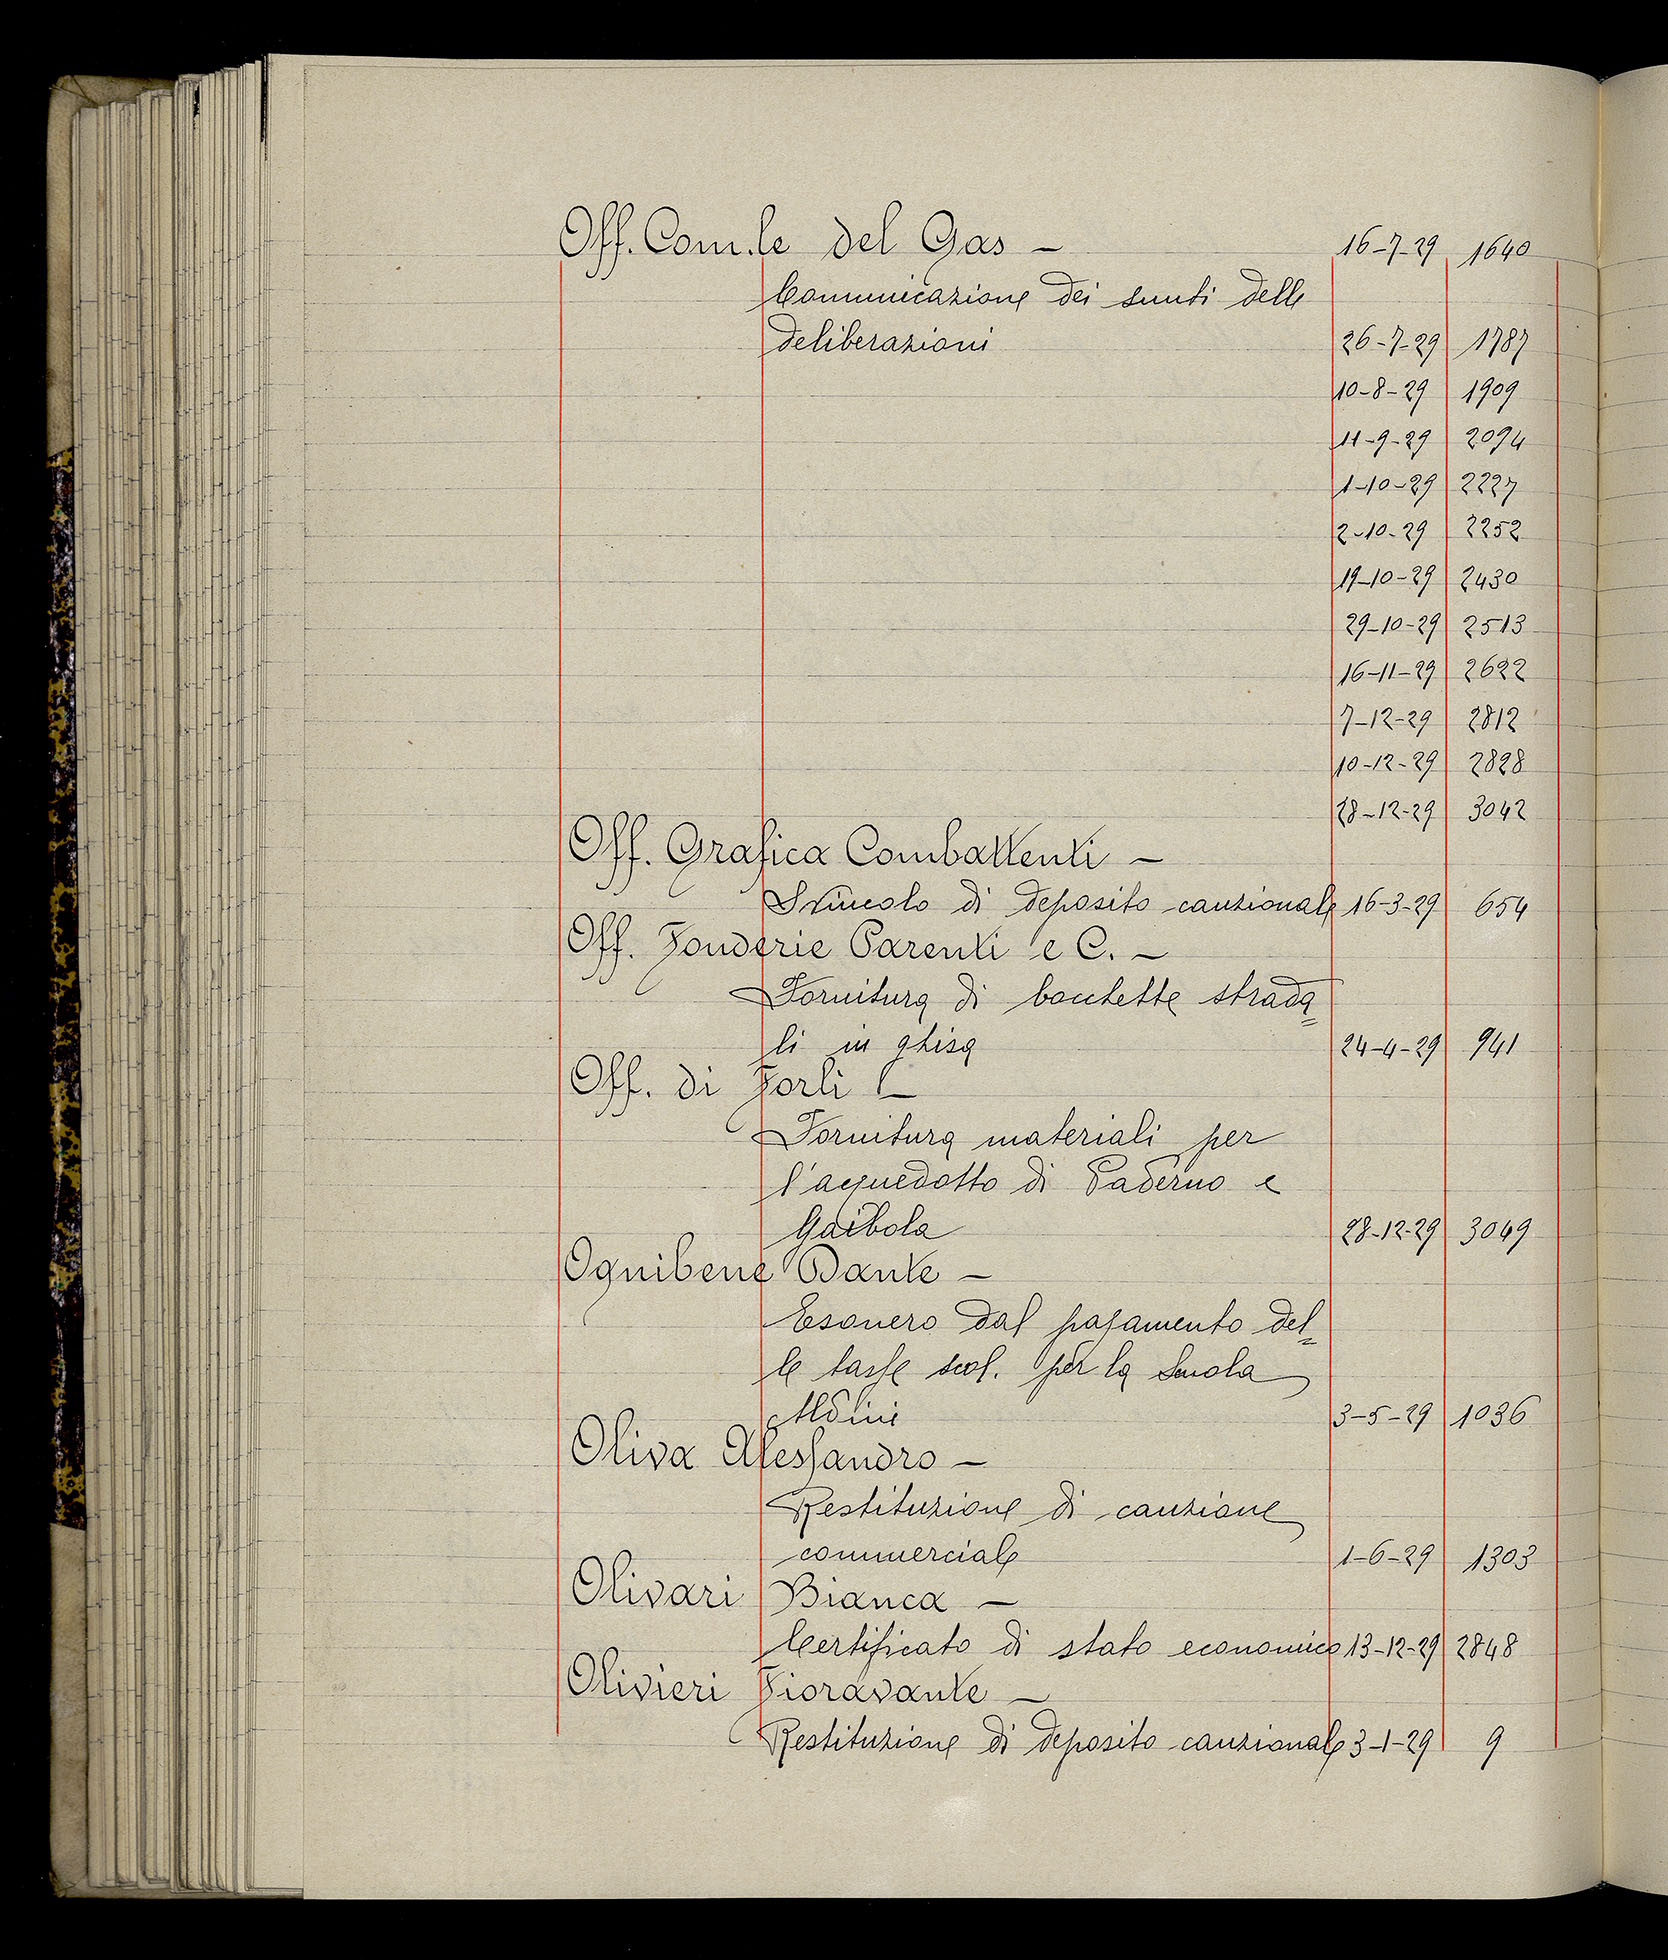 Off. Com.le del Gas — 16-7-29 1640
Comunicazione dei sunti delle
deliberazioni 26-7-29 1787
10-8-29 1909
11-9-29 2094
1-10-29 2227
2-10-29 2252
19-10-29 2430
29-10-29 2513
16-11-29 2622
7-12-29 2812
10-12-29 2828
28-12-29 3042
Off. Grafica Combattenti —
Svincolo di deposito cauzionale 16-3-29 654
Off. Fonderie Parenti e C. —
Fornitura di bocchette strada=
li in ghisa 24-4-29 941
Off. di Forlì —
Fornitura materiali per
l'acquedotto di Paderno e
Gaibola 28-12-29 3049
Ognibene Dante —
Esonero dal pagamento del=
le tasse scol. per la Scuola
Aldini 3-5-29 1036
Oliva Alessandro —
Restituzione di cauzione
commerciale 1-6-29 1303
Olivari Bianca —
Certificato di stato economico 13-12-29 2848
Olivieri Fioravante —
Restituzione di deposito cauzionale 3-1-29 9